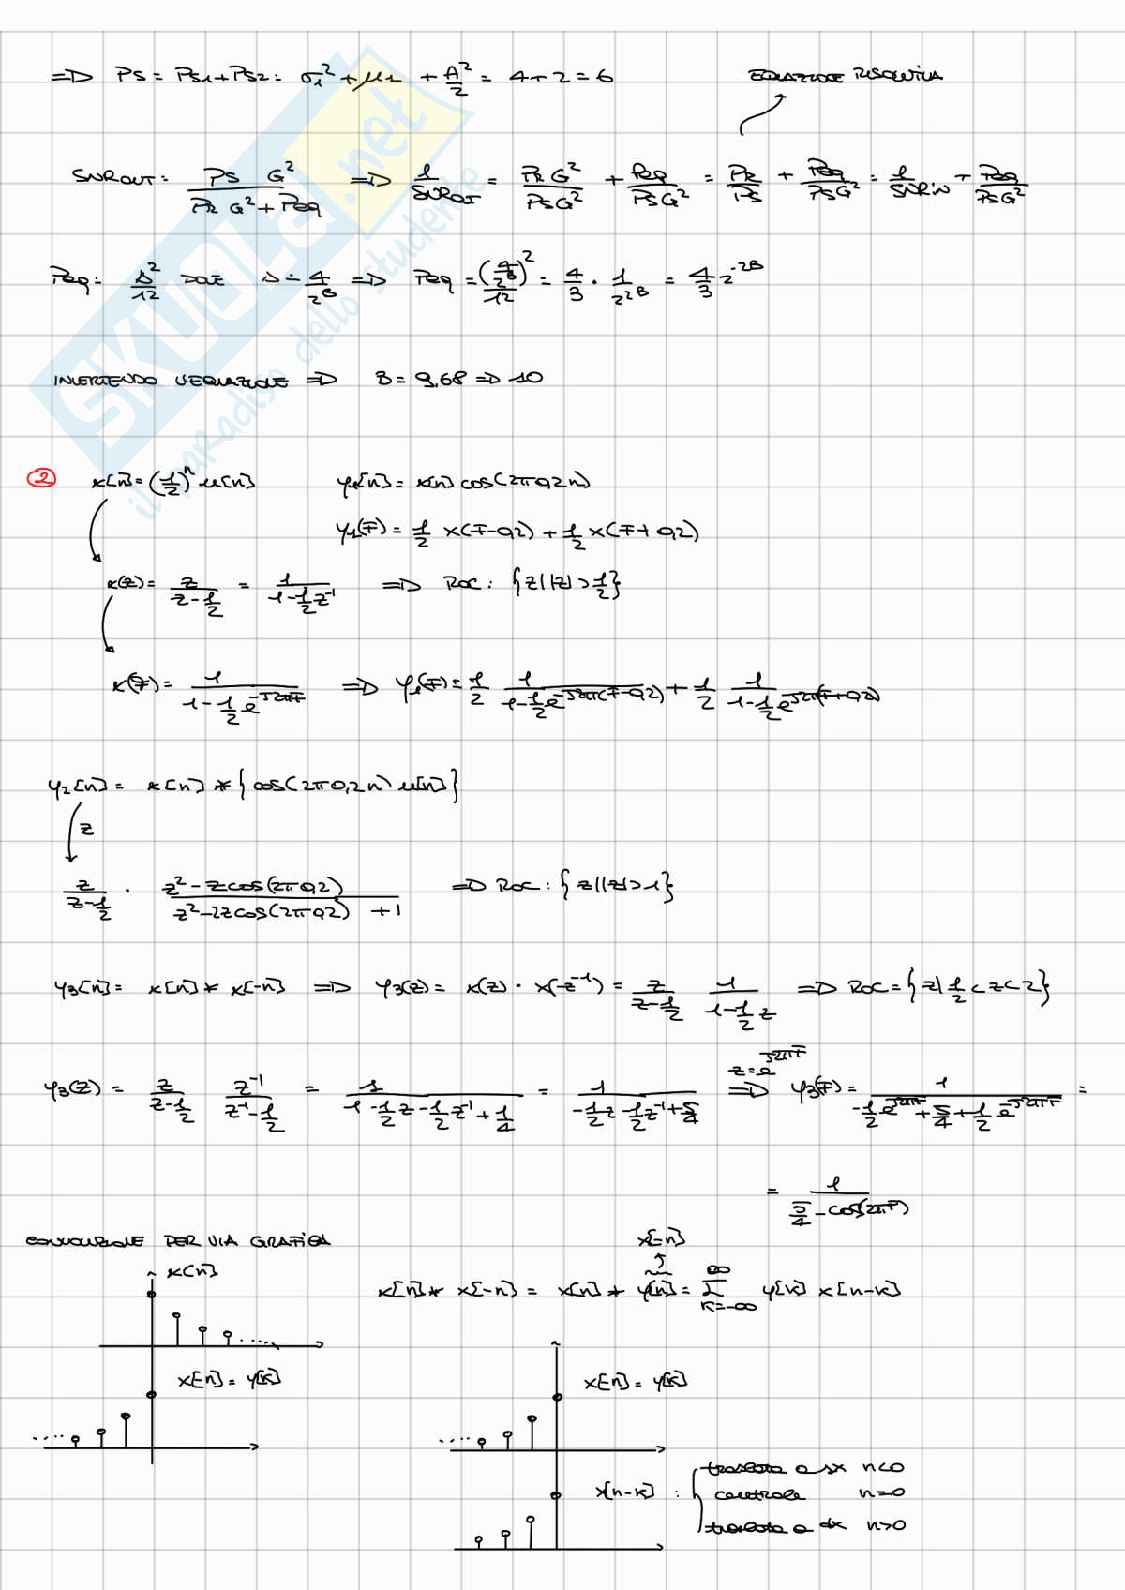 => PS = PS1+PS2 = σ1² + μ1 + A²/2 = 4+2=6
EQUAZIONE RISOLUTIVA
SNROUT = PS G² / (PR G² + Peq) => 1/SNROUT = PR G²/PS G² + Peq/PS G² = PR/PS + Peq/PS G² = 1/SNRIN + Peq/PS G²
Peq = Δ²/12 DOVE Δ = 4/2^B => Peq = (4/2^B)²/12 = 4/3 · 1/2^2B = 4/3 2^-2B
INVERTENDO L'EQUAZIONE => B = 9,68 => 10
② x[n] = (1/2)^n u[n] y1[n] = x[n] cos(2π0,2n)
Y1(F) = 1/2 X(F-0,2) + 1/2 X(F+0,2)
X(z) = z/(z-1/2) = 1/(1-1/2 z^-1) => ROC: {z||z|>1/2}
X(F) = 1/(1-1/2 e^-J2πF) => Y1(F) = 1/2 1/(1-1/2 e^-J2π(F-0,2)) + 1/2 1/(1-1/2 e^J2π(F+0,2))
y2[n] = x[n] * {cos(2π0,2n) u[n]}
z
z/(z-1/2) · (z²-z cos(2π0,2))/(z²-2z cos(2π0,2) +1) => ROC: {z||z|>1}
y3[n] = x[n] * x[-n] => Y3(z) = X(z) · X(-z^-1) = z/(z-1/2) 1/(1-1/2 z) => ROC = {z|1/2 < z < 2}
Y3(z) = z/(z-1/2) z^-1/(z^-1-1/2) = 1/(1-1/2 z-1/2 z^-1+1/4) = 1/(-1/2 z-1/2 z^-1+5/4) z=e^J2πF => Y3(F) = 1/(-1/2 e^J2πF + 5/4 + 1/2 e^-J2πF) =
= 1/(5/4 - cos(2πF))
CONVOLUZIONE PER VIA GRAFICA
x[-n]
x[n]
x[n] * x[-n] = x[n] * y[n] = Σ k=-∞ ∞ y[k] x[n-k]
x[-n] = y[k]
x[-n] = y[k]
x[n-k] : traslata a sx n<0
centrale n=0
traslata a dx n>0
SKUOLA.net
il paradiso dello studente